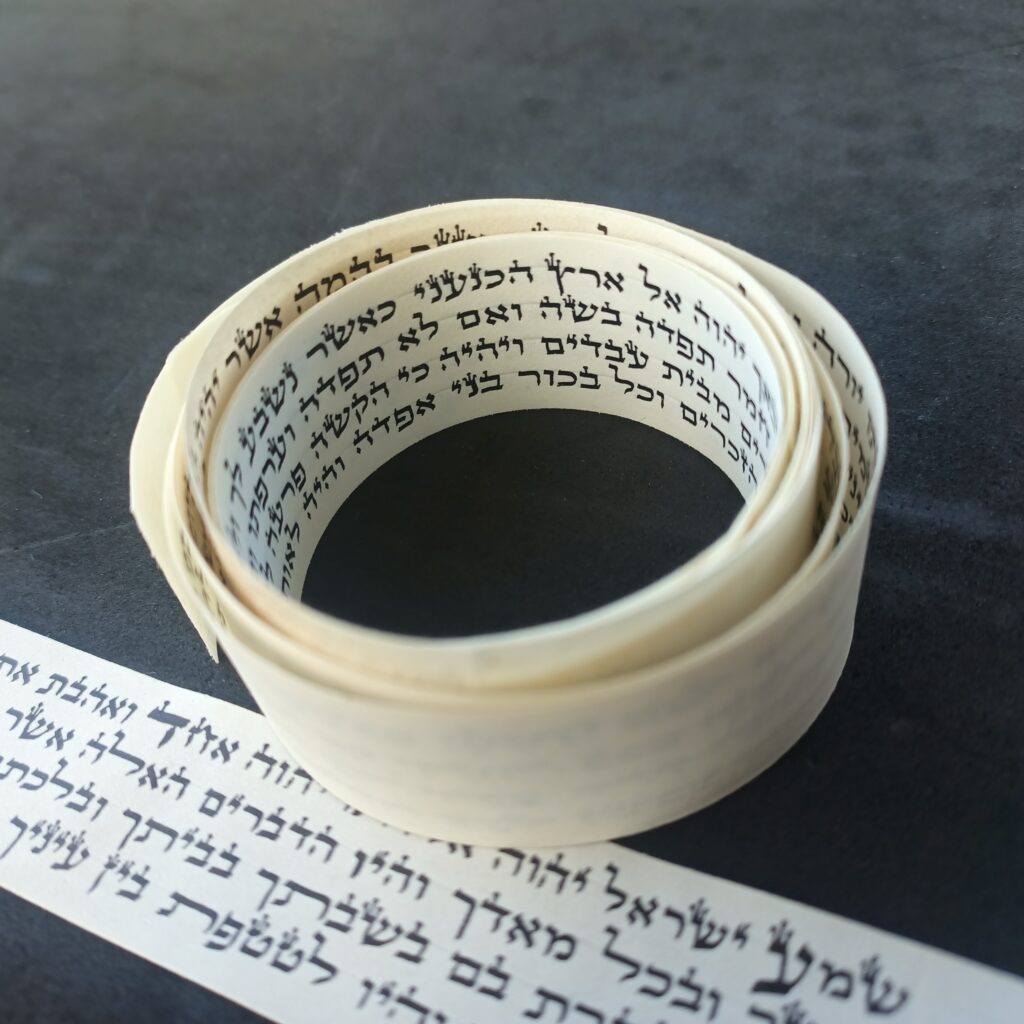 בהמה אשר יהיה
יהוה אל ארץ הכנעני כאשר נשבע לך
חמר תפדה בשה ואם לא תפדה וערפתו
מבית עבדים ויהי כי הקשה פרעה
הזכרים וכל בכור בני אפדה והיה לאות
שמע ישראל יהוה אחד ואהבת את
ובכל מאדך והיו הדברים האלה אשר
בם בשבתך בביתך ובלכתך
והיו לטטפת בין עיניך